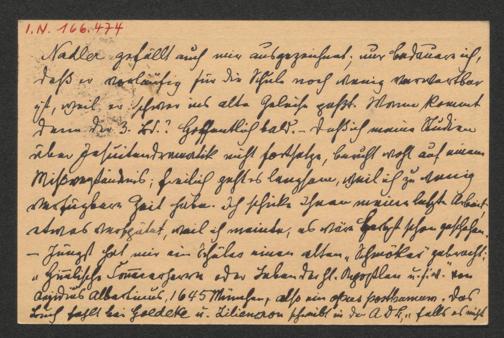 I.N. 166.474
Nadler gefällt auch mir ausgezeichnet, nur bedauere ich,
daß er vorläufig für die Schule noch wenig verwertbar
ist, weil er schwer ins alte Geleise paßt. Wann kommt
denn der 3. Bd.? Hoffentlich bald. – Daß ich meine Studien
über Jesuitendramatik nicht fortsetze, beruht wohl auf einem
Mißverständnis; freilich geht es langsam, weil ich zu wenig
verfügbare Zeit habe. Ich schicke Ihnen meine letzte Arbeit
etwas verspätet, weil ich meinte, es wäre schon geschehen.
– Jüngst hat mir ein Schüler einen alten „Schmöker" gebracht:
„Himmlische Cammerherrn oder Leben der hl. Aposteln u.s.w." von
Aegidius Albertinus, 1645 München, also ein opus posthumum. Das
Buch fehlt bei Goedeke u. Liliencron schreibt in der ADB, „falls es nicht